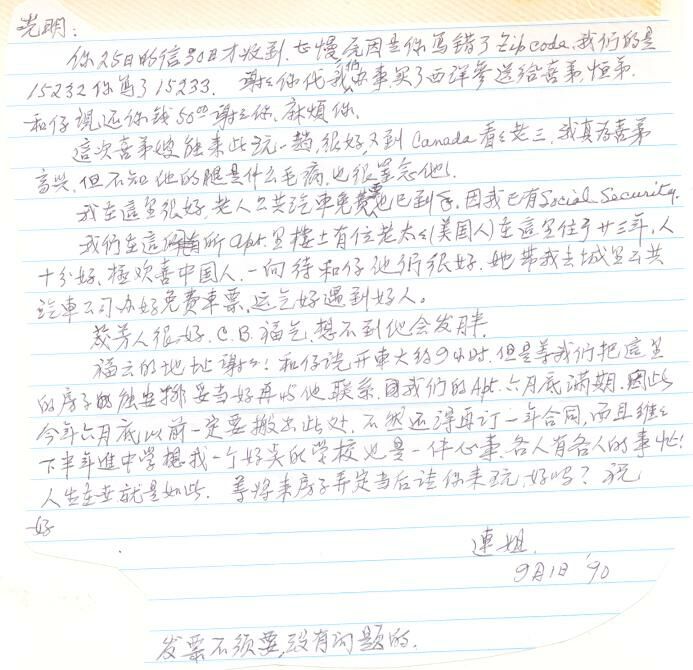 光明:
你25日的信30日才收到.太慢原因是你写錯了Zip code.我们的是
15232你写了15233. 謝々你代我们办事.买了西洋参送给喜弟,恒弟.
和仔说还你钱50.00謝々你.麻煩你.
這次喜弟嫂能来此玩一趟,很好,又到Canada看々老三.我真为喜弟
高兴.但不知他的腿是什么毛病.也很挂念他!
我在這里很好.老人公共汽車免費票也已到手.因我已有Social Security.
我们在這所apt.里楼上有位老太々(美国人)在這里住了廿三年.人
十分好.極欢喜中国人.一向待和仔他们很好.她带我去城里公共
汽車公司办好免费車票.运气好遇到好人。
茂芳人很好.C.B.福气.想不到他会发胖.
福云的地址謝々!和仔说开車大约9小时.但是等我们把這里
的房子安排妥当好再与他联系.因我们的Apt.六月底满期.因此
今年六月底以前一定要搬出此处.不然还得再订一年合同,而且維々
下半年進中学想找一个好点的学校也是一件心事.各人有各人的事忙!
人生在世就是如此. 等将来房子弄定当后请你来玩,好吗? 祝
好
連姐.
9月1日 '90
发票不须要,没有问题的.